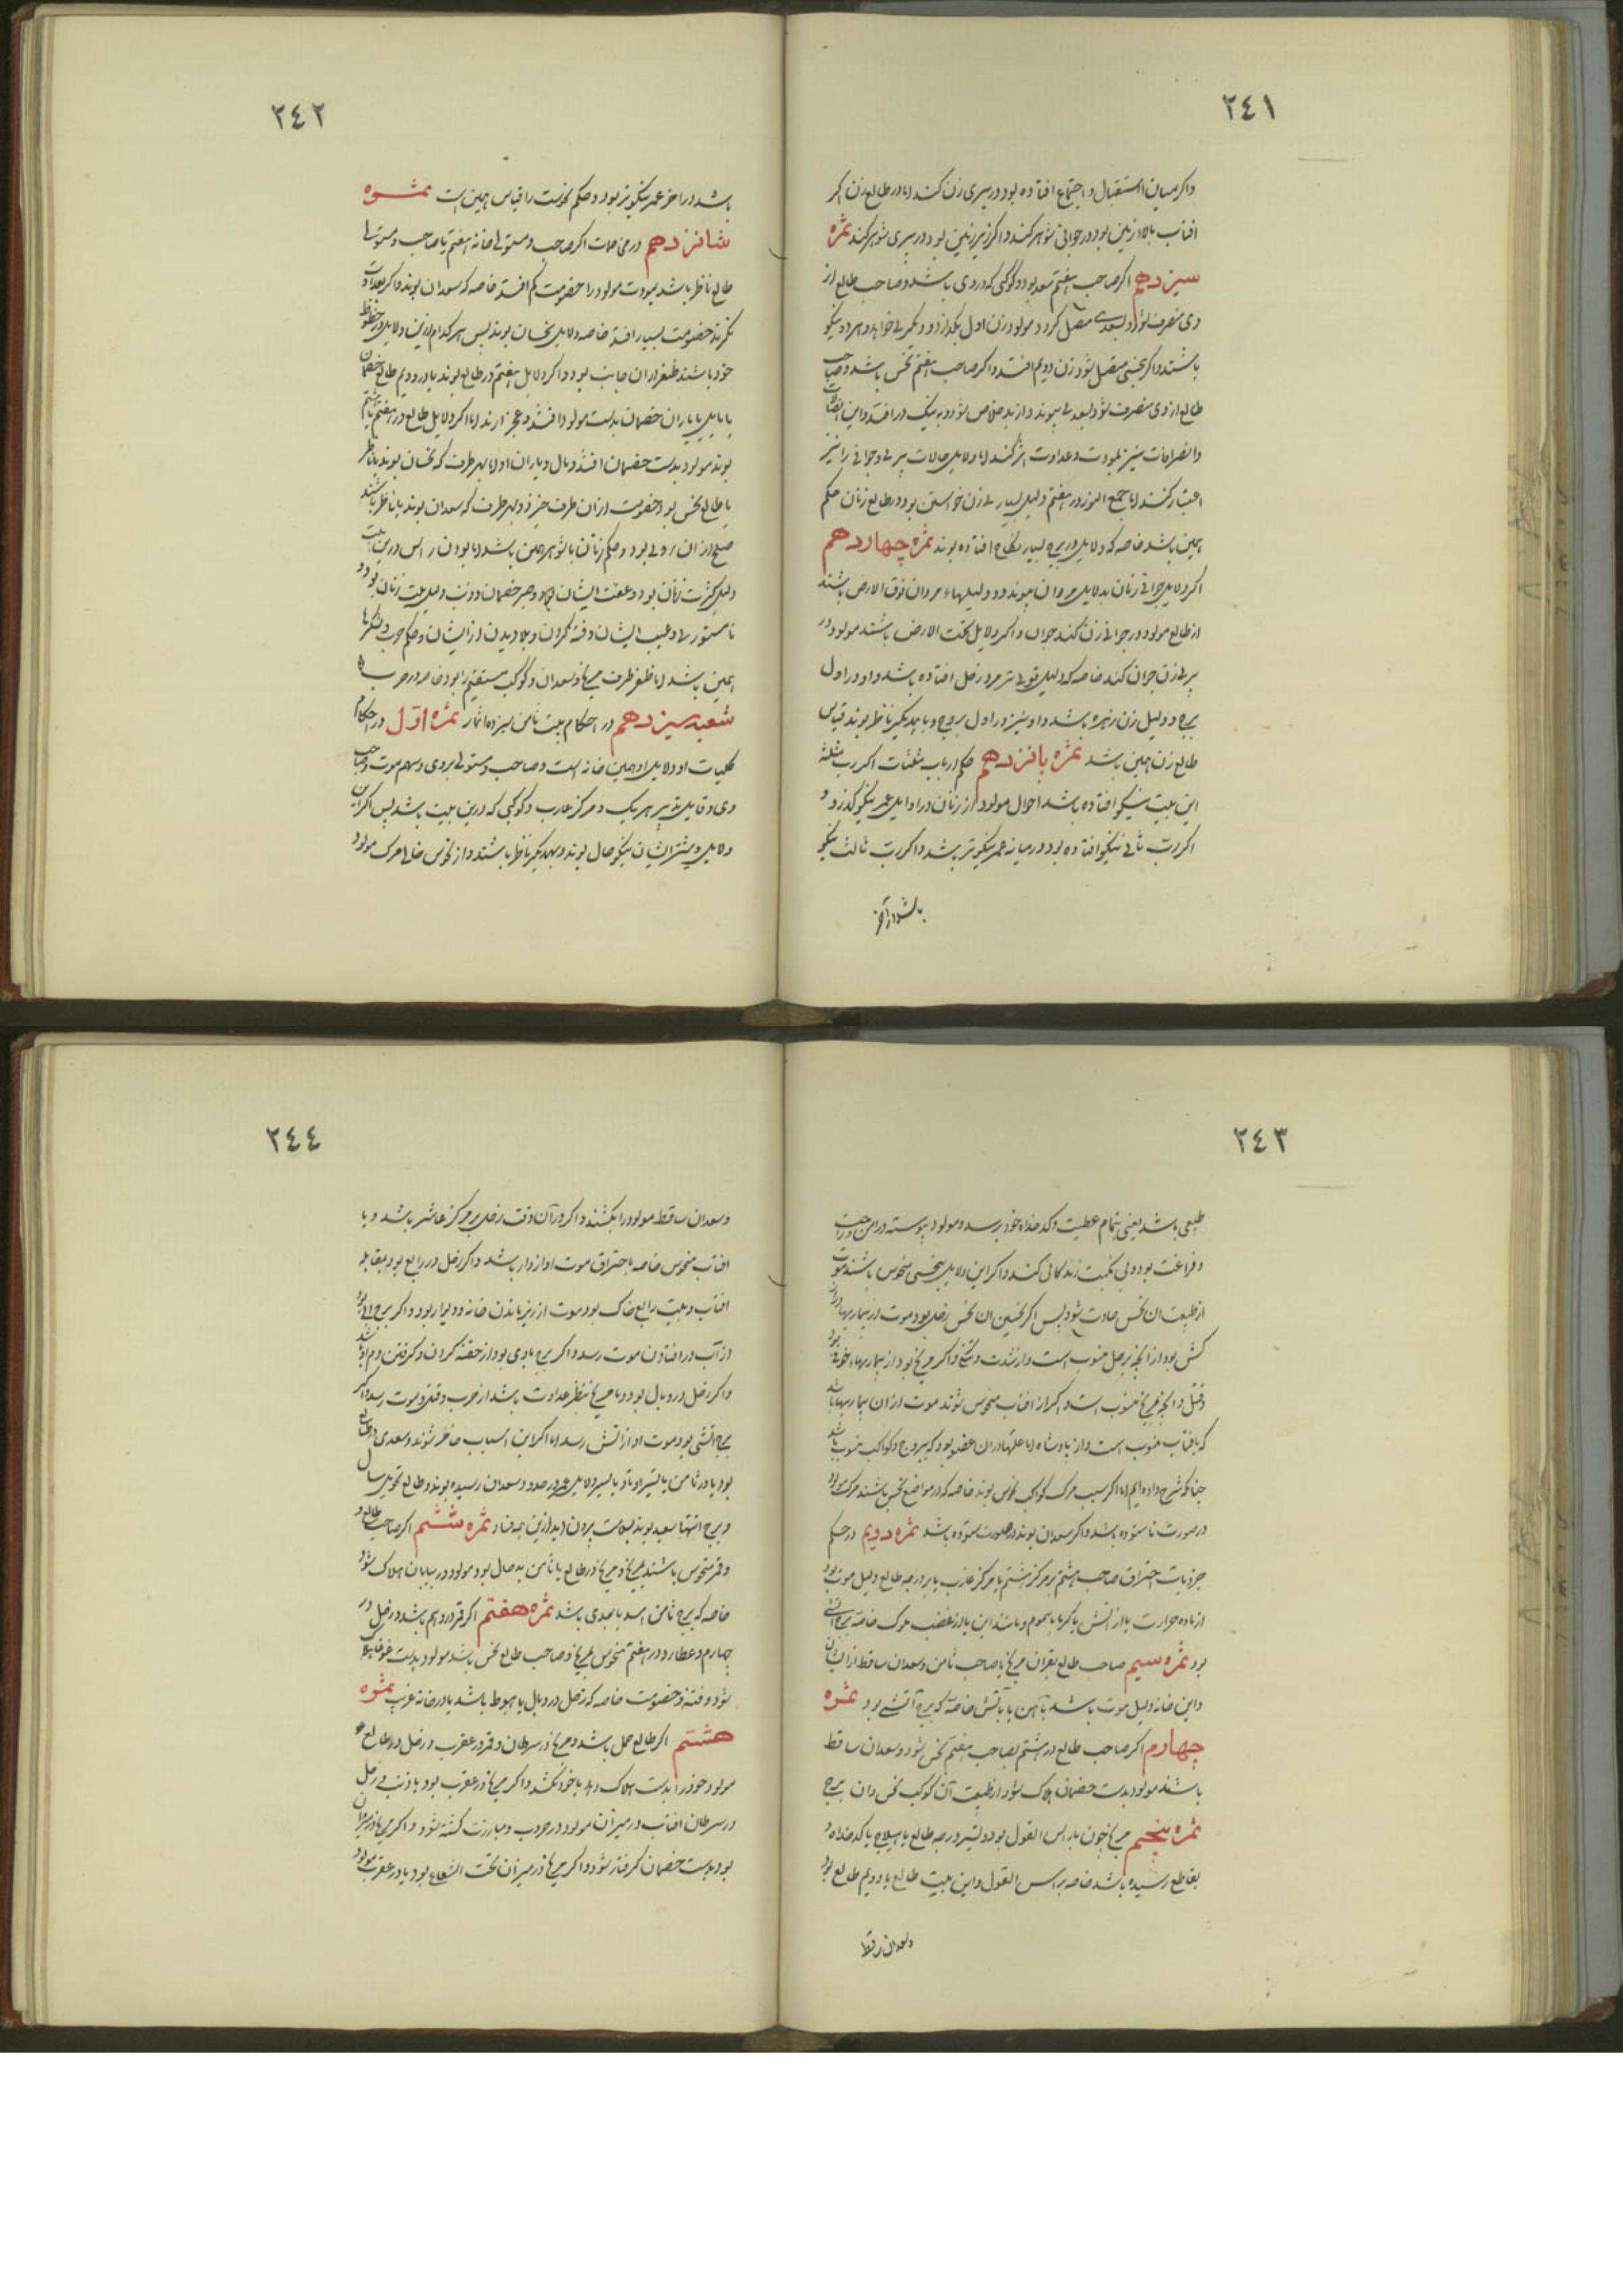 ٢٤١
واکر میان استقبال و اجتماع افتاده بود در پیری زن کند اما در طالع زن اکر
افتاب بالاء زمین بود در جوانی شوهر کند و اکر زیر زمین بود در پیری شوهر کند ثمره
سیزدهم اکر صاحب هفتم سعد بود و کوکبی که در وی باشد و صاحب طالع از
وی منصرف شود و بسعدی متصل کردد مولود زن اول بکذارد و دیکری خواهد و هر دو نیکو
باشند و اکر بنحسی متصل شود زن دویم افتد و اکر صاحب هفتم نحس باشد و صاحب
طالع از وی منصرف شود و بسعدی پیوندد از بد خلاص شود و به نیک در افتد و این اتصالات
و انصرافات نیز بمودت و عداوت اثر کند اما دلایل حالات پیری و جوانی را نیز
اعتبار کنند اما جمع النور در هفتم دلیل بسیاری زن خواستن بود و در طالع زنان حکم
همین باشد خاصه که دلایل در برج بسیار نکاح افتاده بوند ثمره چهاردهم
اکر دلایل جوانی زنان بدلایل مردان پیوندد و دلیلهاء مردان فوق الارض باشند
از طالع مولود در جوانی زن کند جوان و اکر دلایل تحت الارض باشند مولود در
پیری زن جوان کند خاصه که دلیل قوی تر مرد زحل افتاده باشد و او در اول
برج و دلیل زن زهره باشد و او نیز در اول بروج و با یکدیکر ناظر بوند قیاس
طالع زن همین باشد ثمره پانزدهم حکم ارباب مثلثات اکر رب مثلثه
این بیت نیکو افتاده باشد احوال مولود از زنان در اوایل عمر نیکو کذرد و
اکر رب ثانی نیکو افتاده بود در میانه عمر نیکوتر باشد و اکر رب ثالث نیکو
باشد در آخر
٢٤٢
باشد در اخر عمر نیکوتر بود و حکم را قیاس همین است ثمره
شانزدهم در مخاصمات اکر صاحب و مستولی خانه هفتم با صاحب و مستولی
طالع ناظر باشد بمودت مولود را خصومت کم افتد خاصه که سعدان بوند و اکر بعداوت
نکرند خصومت بسیار افتد خاصه دلایل نحسان بوند پس هر کدام ازین دلایل در حظوظ
خود باشند ظفر از ان جانب بود و اکر دلایل هفتم در طالع بوند یا در دویم طالع خصمان
یا یاران خصمان بدست مولود افتند و عجز ارند اما اکر دلایل طالع در هفتم یا هشتم
بوند مولود بدست خصمان افتد و مال و یاران او اما بهر طرف که نحسان بوند یا ناظر
یا طالع نحس بود خصومت از ان طرف خیزد و بهر طرف که سعدان بوند یا ناظر باشند
صلح از ان روی بود و حکم زنان با شوهر همین باشد اما بودن راس درین بیت
دلیل کثرت زنان بود و عفت ایشان و خصمان و ذنب دلیل زنان بود و
نا مستوری و عیب ایشان و فتنه کردن و بلا دیدن از ایشان و حکم حرب و لشکرها
همین باشد اما ظفر طرف مریخ و سعدان و کوکب مستقیم را بود خاصه در حرب
شعبه سیزدهم در احکام بیت ثامن سیزده اثمار ثمره اول در احکام
کلیات او دلایل او همین خانه است و صاحب و مستولی بر وی و سهم موت و صاحب
وی و قابل تدبیر هر یک و مرکز غارب و کوکبی که درین بیت باشد پس اکر این
دلایل و بیشتر ایشان نیکو حال بوند و بیکدیکر ناظر باشند و از نحوس خالی مرک مولود
٢٤٣
طبیعی باشد یعنی بتمام عطیت و کدخداه خود برسد و مولود پیوسته در امن و راحت
و فراغت بود و بی نکبت زندکانی کند و اکر این دلایل بنحسی منحوس باشند موت
از طبیعت ان نحس حادث شود پس اکر نحسین ان نحس زحل بود موت از بیماریهاء دراز
کش بود از انچه بزحل منسوب است و از شدت و سختی و اکر مریخ بود از بیماریهاء خونی بود
و قتل و انچه بمریخ منسوب است و اکر از افتاب منحوس شوند موت از ان بیماریها باشد
که بافتاب منسوب است و از پادشاه اما علتها در ان عضو بود که ببروج و کواکب منسوب باشد
چنانکه شرح داده ایم اما اکر سبب مرک کواکب نحوس بوند خاصه که در مواضع نحس باشند مرک بود
در صورت ناستوده باشد و اکر سعدان بوند در صورت ستوده باشد ثمره دویم در حکم
جزویات احتراق صاحب هشتم بر مرکز هشتم یا مرکز غارب یا بر درجه طالع دلیل موت بود
از ماده حرارت یا از اتش یا کرما یا سموم و مانند این یا از غضب ملوک خاصه برج اتشی
بود ثمره سیم صاحب طالع بقران مریخ یا صاحب ثامن و سعدان ساقط از ایشان
و این خانه دلیل موت باشد بآهن یا بآتش خاصه که برج آتشی بود ثمره
چهارم اکر صاحب طالع در هشتم بصاحب هفتم نحس شود و سعدان ساقط
باشند مولود بدست خصمان هلاک شود از طبیعت آن کوکب نحس و ان برج
ثمره پنجم مریخ چون براس الغول بود و تسییر درجه طالع یا هیلاج یا کدخداه و
بقاطع رسیده باشد خاصه براس الغول و این بیت طالع یا دویم طالع بود
و سعدان ساقط
٢٤٤
و سعدان ساقط مولود را بکشند و اکر در آن وقت زحل بر مرکز عاشر باشد و با
افتاب منحوس خاصه باحتراق موت او از دار باشد و اکر زحل در رابع بود بمقابله
افتاب و بیت رابع خاک بود موت از زیر ماندن خانه و دیوار بود و اکر برج ابی بود
از آب در افتادن موت رسد و اکر برج بادی بود از خفه کردن و کرفتن دم او باشد
و اکر زحل در وبال بود و با مریخ بنظر عداوت باشد از ضرب و قتل موت رسد و اکر
برج اتشی بود موت او از اتش رسد اما اکر این اسباب حاضر شوند و سعدی در طالع
بود یا در ثامن یا تسییر دلایل عمر بحدود سعدان رسیده بوند و طالع تحویل سال
و برج انتها سعید بوند بسلامت بیرون اید ازین همه فنا ثمره ششم اکر صاحب طالع و
و قمر منحوس باشند بمریخ و مریخ در طالع یا ثامن بد حال بود مولود در بیابان هلاک شود
خاصه که برج ثامن اسد یا جدی باشد ثمره هفتم اکر قمر در دهم باشد و زحل در
چهارم و عطارد در هفتم منحوس بمریخ و صاحب طالع نحس باشد مولود بدست غوغا هلاک
شود و فتنه و خصومت خاصه که زحل در وبال یا هبوط باشد یا در خانه غریب ثمره
هشتم اکر طالع حمل باشد و مریخ در سرطان و قمر در عقرب و زحل در طالع
مولود خود را بدست هلاک دهد یا خود بکشد و اکر مریخ در عقرب بود با ذنب و زحل
در سرطان افتاب در میزان مولود در حرب و مبارزت کشته شود و اکر مریخ در میزان
بود بدست خصمان کرفتار شود و اکر مریخ در میزان تحت الشعاع بود یا در عقرب مولود